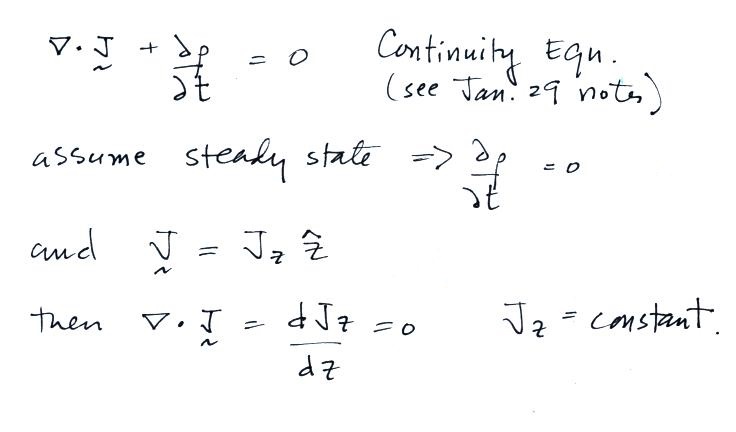 ∇·J̰ + ∂ρ/∂t = 0 Continuity Eqn.
(see Jan. 29 notes)
assume steady state => ∂ρ/∂t = 0
and J̰ = J_z ẑ
then ∇·J̰ = dJ_z/dz = 0 J_z = constant.